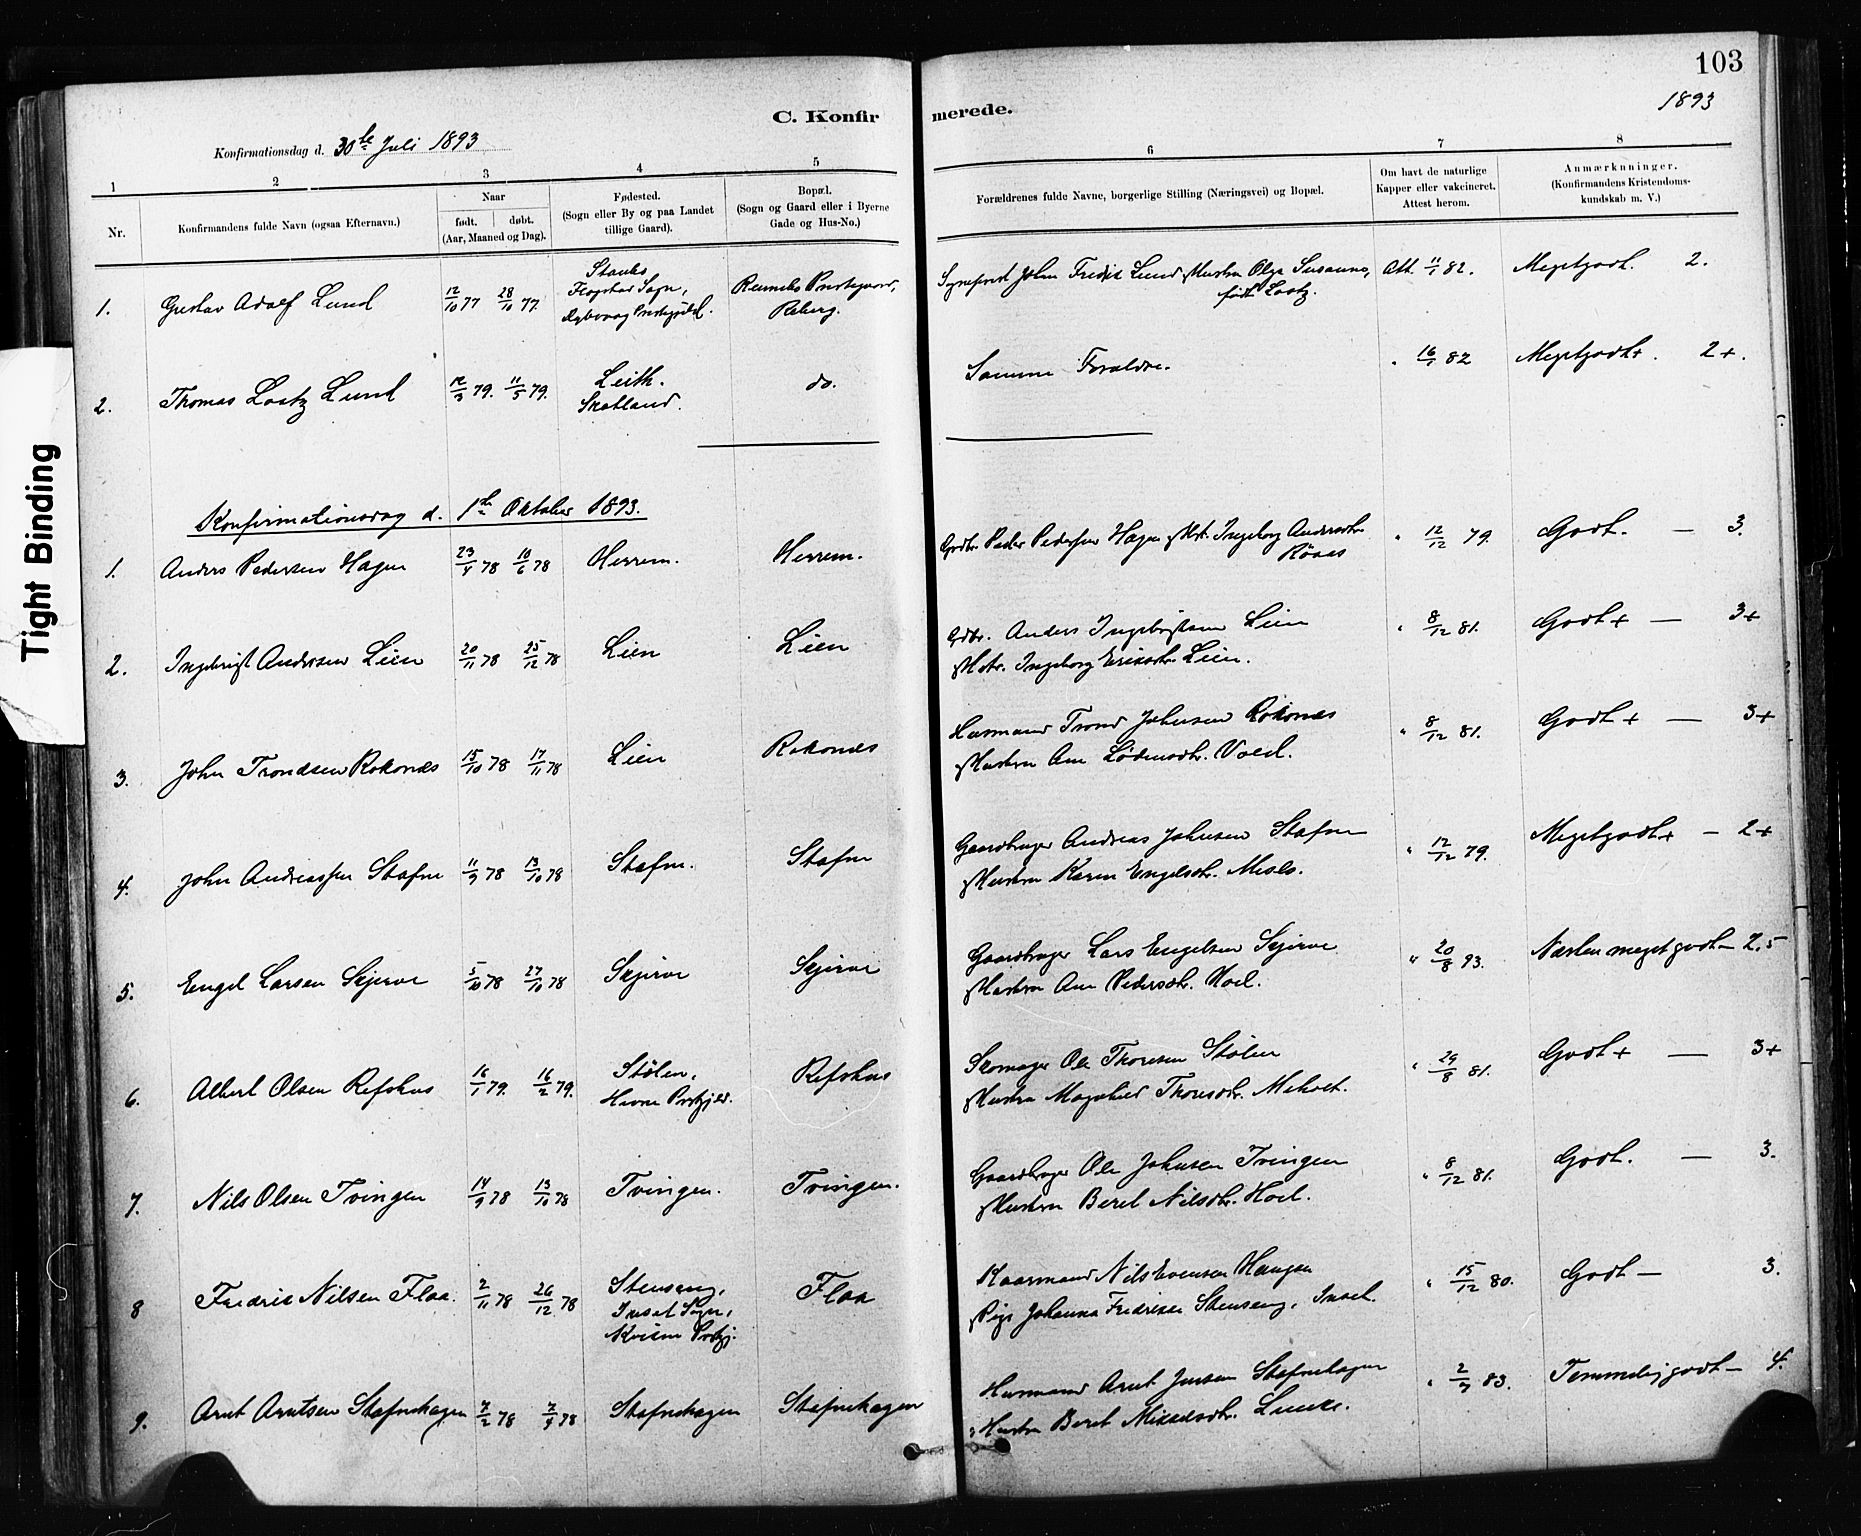 103
1893
C. Konfirmerede.
Konfirmationsdag d. 30te Juli 1893
1 2 3 4 5 6 7 8
Nr.
Konfirmandens fulde Navn (ogsaa Efternavn.)
Naar
født. døbt.
(Aar, Maaned og Dag).
Fødested.
(Sogn eller By og paa Landet
tillige Gaard).
Bopæl.
(Sogn og Gaard eller i Byerne
Gade og Hus-No.)
Forældrenes fulde Navne, borgerlige Stilling (Næringsvei) og Bopæl.
Om havt de naturlige
Kapper eller vakcineret.
Attest herom.
Anmærkninger.
(Konfirmandens Kristendoms-
kundskab m. V.)
1. Gustav Adolf Lund 12/10 77 28/10 77. Sogn, Rennebo Prestegaard, John Fredrik Lund Hustru Olga Susanna, født Lootz. Att. 82. Megetgodt. 2.
2. Thomas Lootz Lund 79. 11/5 79. Leith. Skotland. do. Samme Forældre. " 82 Megetgodt+. 2+.
Konfirmationsdag d. 1ste Oktober 1893.
1. Anders Pedersen Hagen 23/4 78 10/6 78 Herrem. Herrem. Gdbr. Peder Pedersen Hagen Hst. Ingeborg Andersdtr. " 12/12 79. Godt. — 3.
2. Ingebrigt Andersen Lien 20/11 78 25/12 78 Lien Lien Gdbr. Anders Ingebrigtsen Lien
Hstr. Ingeborg Eriksdtr. Lien. " 8/12 81. Godt+ — 3+
3. John Trondsen Rokonæs 15/10 78 17/11 78 Lien Rokonæs Husmand Trond Johnsen Rokonæs
Hustru Ane Vold. " 8/12 81. Godt+ — 3+
4. John Andreassen Stafne 11/9 78 13/10 78 Stafne. Stafne Gaardbruger Andreas Johnsen Stafne
Hustru Karen Engelsdtr. " 12/12 79. Megetgodt+ — 2+
5. Engel Larsen Skjerve 5/10 78 27/10 78 Skjerve Skjerve Gaardbruger Lars Engelsen Skjerve
Hustru Ane Pedersdtr. Hoel. " 20/8 93. Næsten meget godt — 2,5
6. Albert Olsen Refshus 16/1 79. 16/2 79. Stølen, Hevne Prstgjeld. Refshus Skomager Ole Thoresen Stølen
Hustru Magnhild Thoresdtr. " 29/8 81. Godt+ — 3+
7. Nils Olsen Tvingen 14/9 78 13/10 78 Tvingen. Tvingen. Gaardbruger Ole Johnsen Tvingen
Hustru Beret Nilsdtr. Hoel. " 8/12 81. Godt. — 3.
8 Fredrik Nilsen Flaa. 2/11 78 26/12 78 Stenseng, Inset Sogn, Kvikne Prstgj. Flaa Nils Evensen Haugen
Pige Johanna Fredrikke Stenseng, Inset. " 15/12 80. Godt — 3.
9. Arnt Arntsen Stafnehagen 7/2 78 7/4 78 Stafnehagen Stafnehagen Husmand Arnt Jensen Stafnehagen
Hustru Beret Mikkelsdtr. " 83. Temmelig godt — 4.
Tight Binding